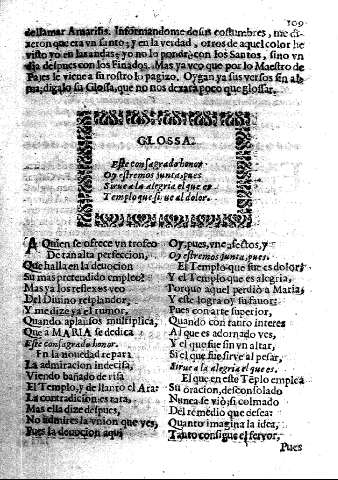 109
de llamar Amarilis. Informandome de sus costumbres, me di-
xeron que era vn santo; y en la verdad, otros de aquel color he
visto yo en las andas; yo no lo pondrè con los Santos, sino vn
dia despues con los Finados. Mas ya veo que por lo Maestro de
Pajes le viene a su rostro lo pagizo. Oygan ya sus versos sin al-
ma; digalo su Glossa, que no nos dexarà poco que glossar.
GLOSSA.
Este consagrado honor
Oy estremos junta, pues
Sirue a la alegria el que es
Templo que siruе al dolor.
A Quien se ofrece vn trofeo
De tan alta perfeccion,
Que halla en la deuocion
Su mas pretendido empleo?
Mas ya los reflexos veo
Del Diuino resplandor,
Y me dize ya el rumor,
Quando aplausos multiplica,
Que a MARIA se dedica
Este consagrado honor.
En la nouedad repara
La admiracion indecisa,
Viendo bañado de risa
El Templo, y de llanto el Ara:
La contradicion es rara,
Mas ella dize despues,
No admires la vnion que ves,
Pues la deuocion aqui
Oy, pues, vne afectos, y
Oy estremos junta, pues.
El Templo que fue es dolor
Y el Templo que es alegria,
Porque aquel perdiò a Maria,
Y este logra oy su fauor:
Pues con arte superior,
Quando con raro interes
Al que es adornado ves,
Y el que fue sin vn altar,
Si el que fue sirve al pesar,
Sirue a la alegria el que es.
El que en este Tẽplo emplea
Su oracion, desconsolado
Nunca se viò; si colmado
Del remedio que desea:
Quanto imagina la idea,
Tanto consigue el feruor,
Pues